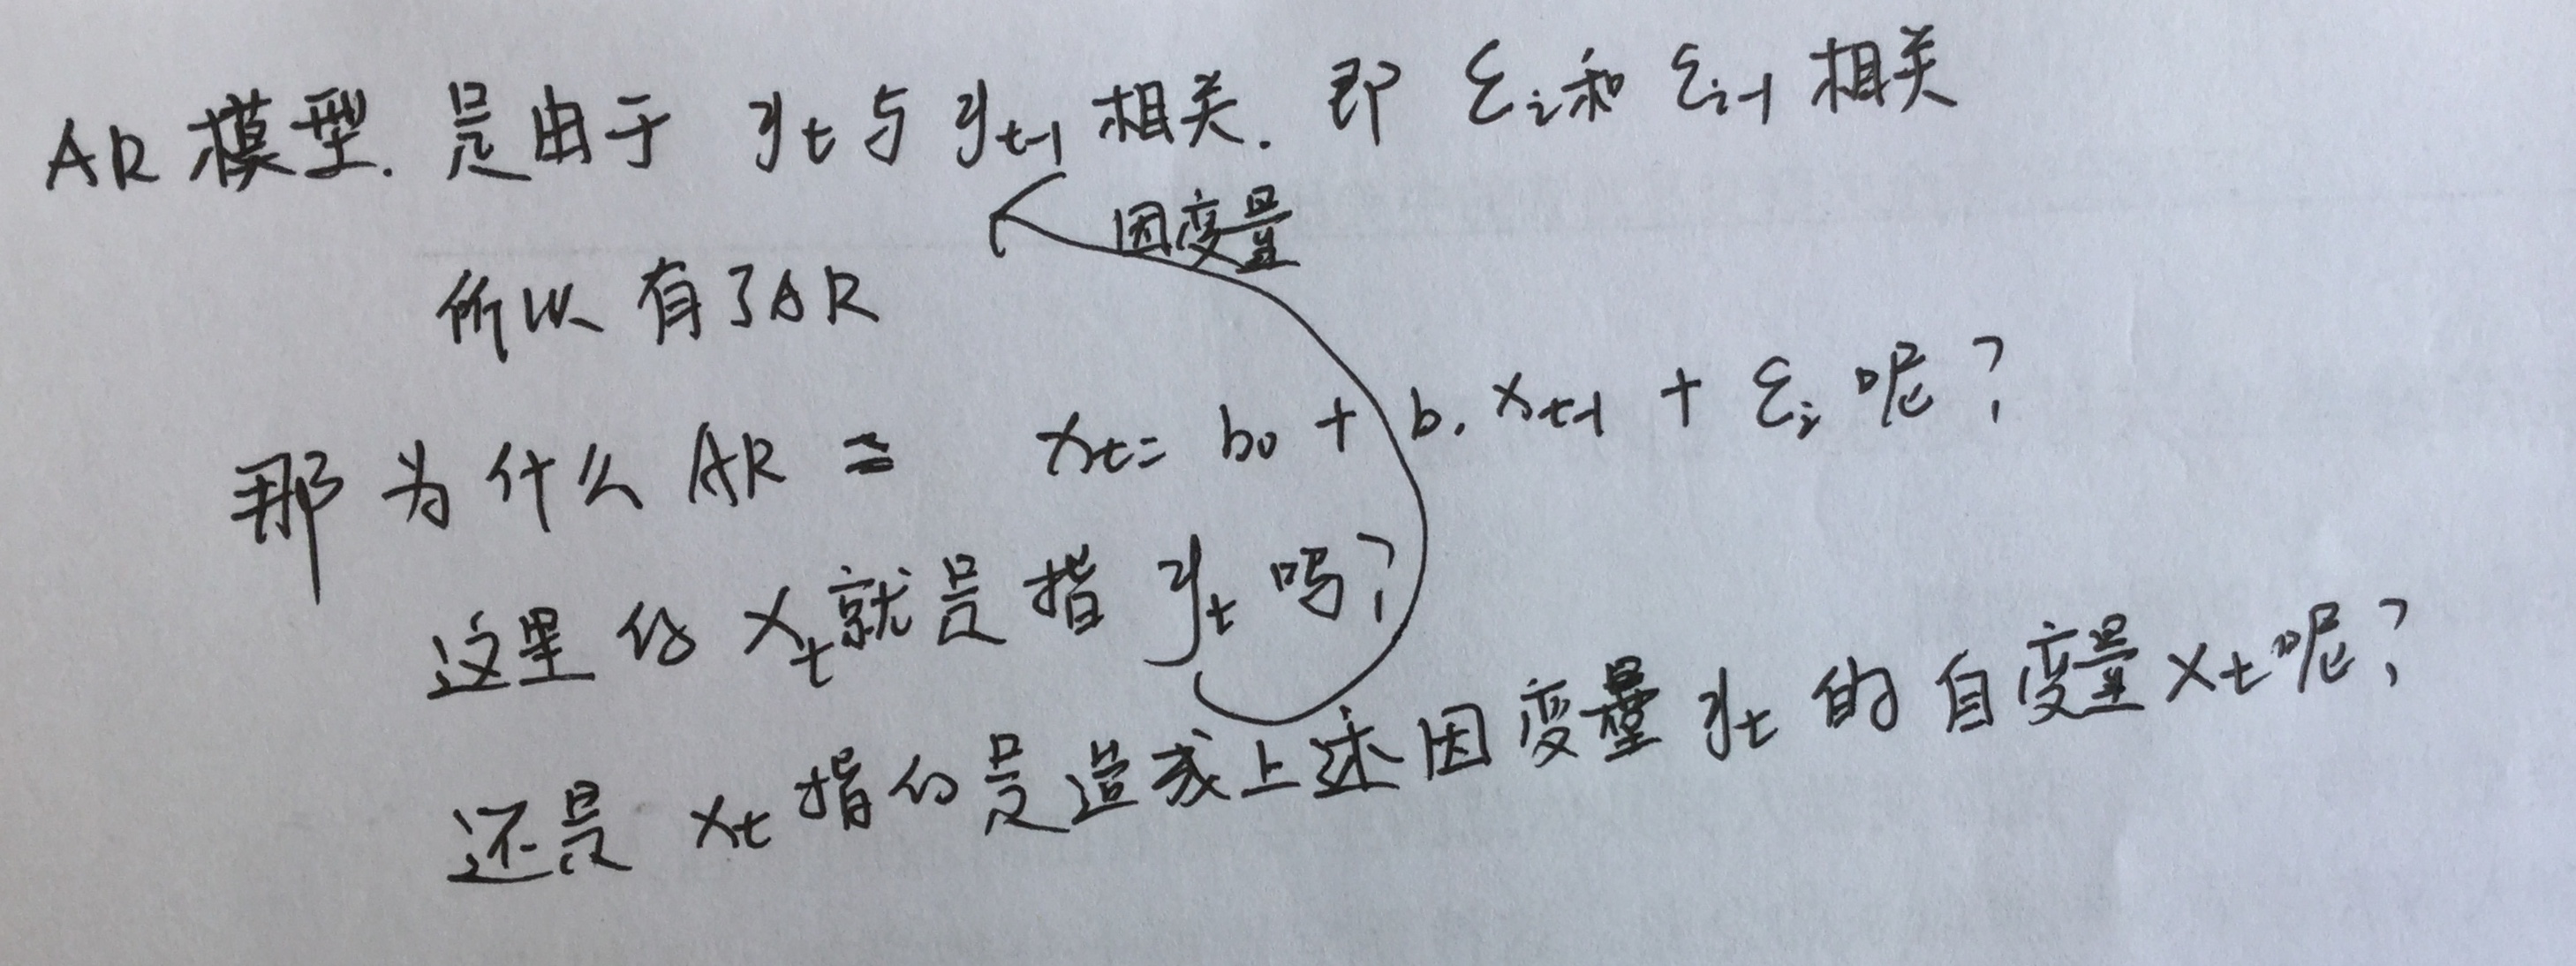 AR 模型. 是由于 yt 与 yt-1 相关. 即 εi 和 εi-1 相关
因变量
所以有了AR
那为什么 AR = xt = b0 + b1 xt-1 + εi 呢?
这里的 xt 就是指 yt 吗?
还是 xt 指的是造成上述因变量 yt 的自变量 xt 呢?